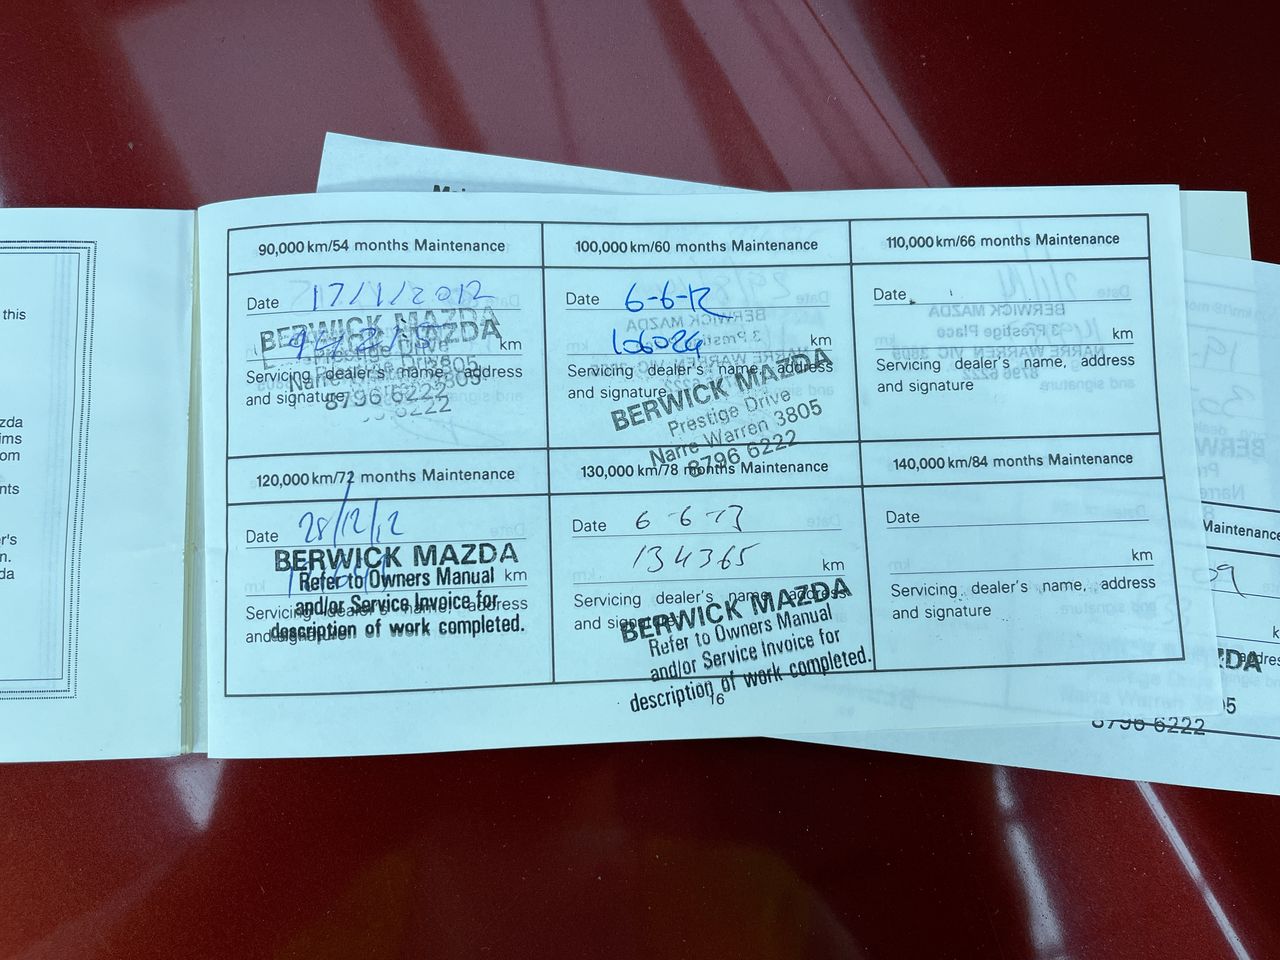 this
zda
ims
om
nts
er's
n.
da
90,000 km/54 months Maintenance
Date 17/1/2012
BERWICK MAZDA
km
Prestige Drive
Servicing dealer's name, address
and signature
8796 6222
100,000 km/60 months Maintenance
Date 6-6-12
106024 km
Servicing dealer's name, address
and signature
BERWICK MAZDA
Prestige Drive
Narre Warren 3805
8796 6222
110,000 km/66 months Maintenance
Date
km
Servicing dealer's name, address
and signature
120,000 km/72 months Maintenance
Date 28/12/12
BERWICK MAZDA
Refer to Owners Manual km
and/or Service Invoice for
Servicing dealer's name, address
and signature
description of work completed.
130,000 km/78 months Maintenance
Date 6-6-13
134365 km
Servicing dealer's name, address
and signature
BERWICK MAZDA
Refer to Owners Manual
and/or Service Invoice for
description of work completed.
140,000 km/84 months Maintenance
Date
km
Servicing dealer's name, address
and signature
16
Maintenance
09
ZDA
8796 6222